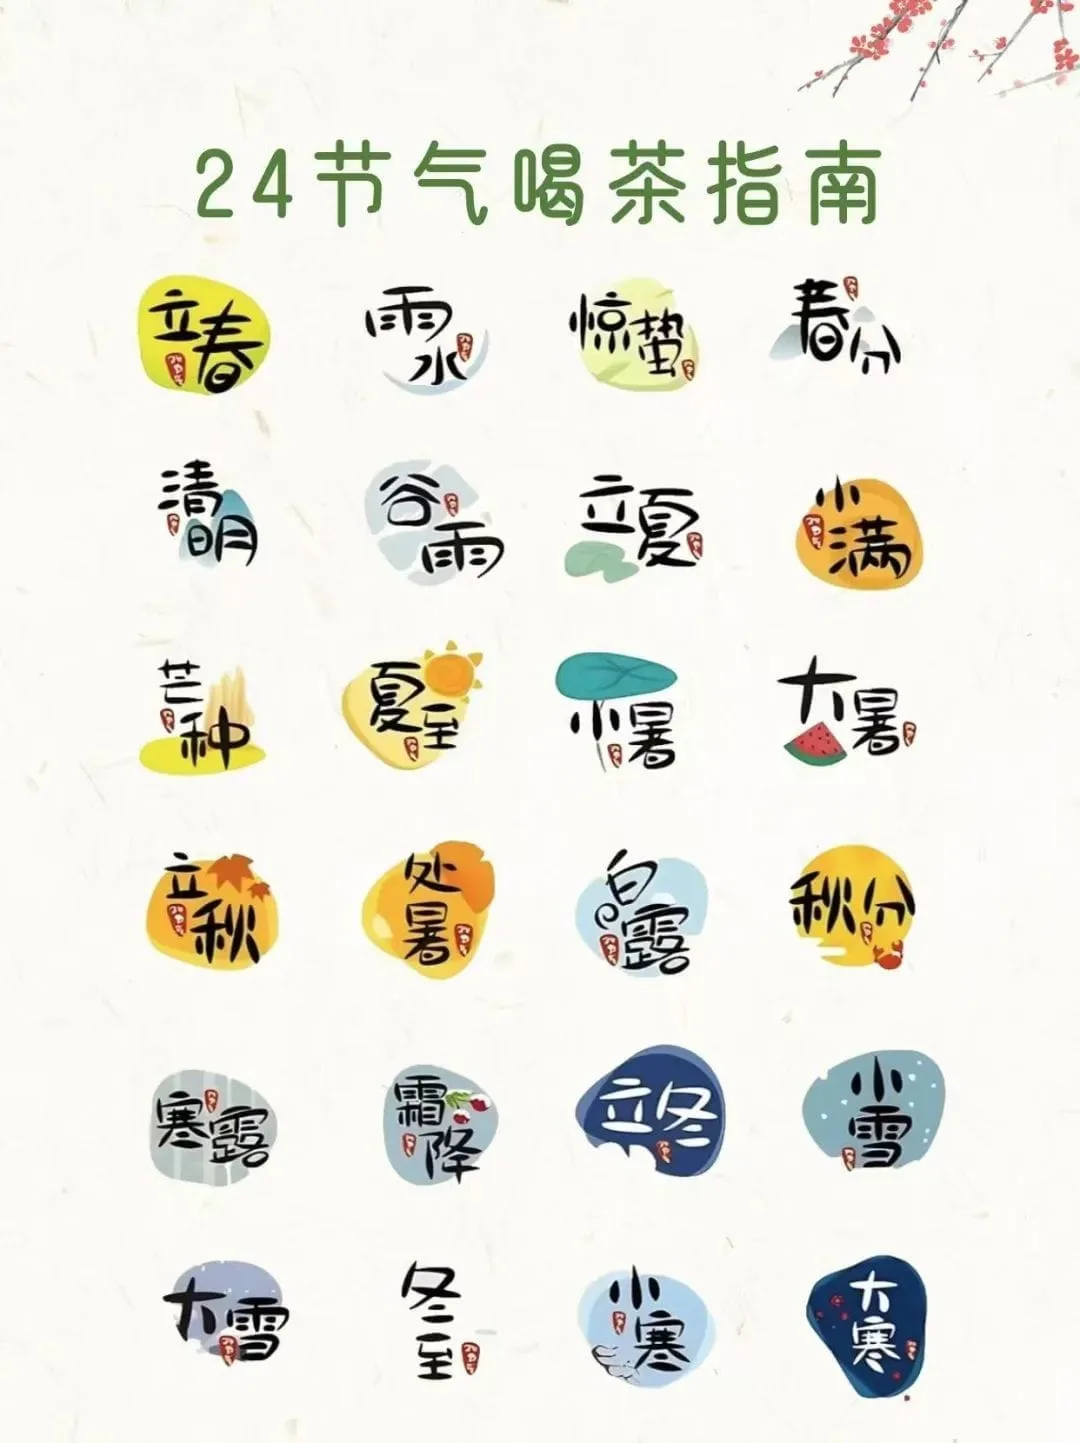 24节气喝茶指南
立春 雨水 惊蛰 春分
清明 谷雨 立夏 小满
芒种 夏至 小暑 大暑
立秋 处暑 白露 秋分
寒露 霜降 立冬 小雪
大雪 冬至 小寒 大寒